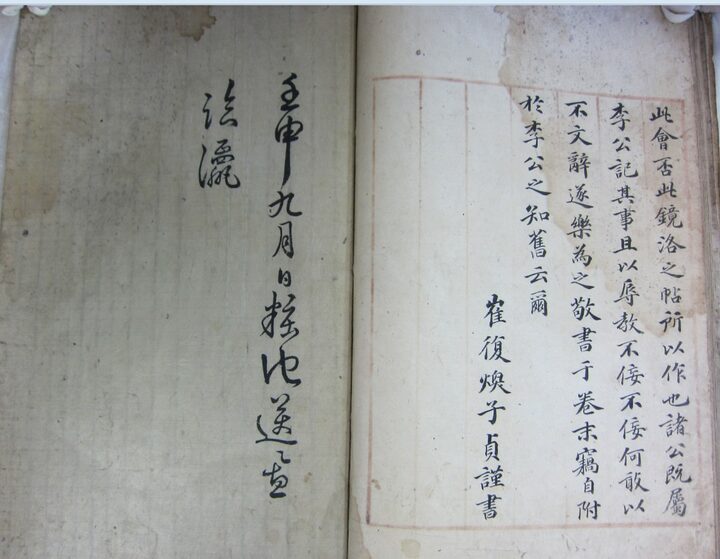 此會否此鏡洛之帖所以作也諸公既屬
李公記其事且以辱教不佞不佞何敢以
不文辭遂樂為之敬書于卷末竊自附
於李公之知舊云爾
崔復煥子貞謹書
壬申九月日粧池送